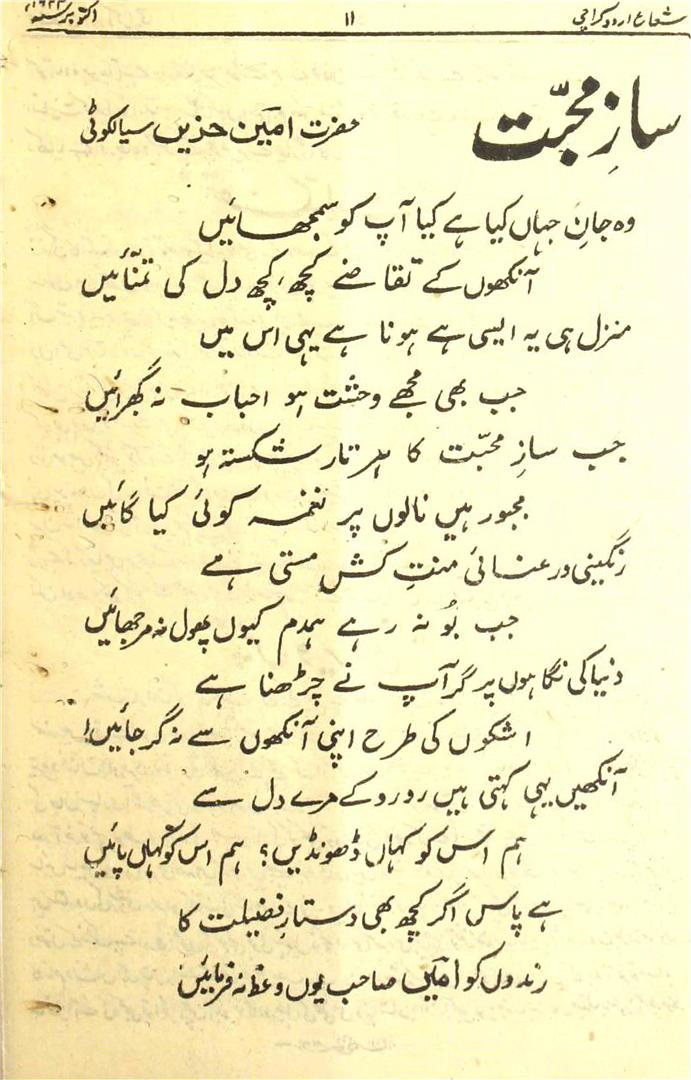 شعاع اردو کراچی ۱۱ اکتوبر سنہ
سازِ محبّت
حضرت امین حزیں سیالکوٹی
وہ جانِ جہاں کیا ہے کیا آپ کو سمجھائیں
آنکھوں کے تقاضے کچھ، کچھ دل کی تمنّائیں
منزل ہی یہ ایسی ہے ہونا ہے یہی اس میں
جب بھی مجھے وحشت ہو احباب نہ گھبرائیں
جب سازِ محبّت کا ہر تار شکستہ ہو
مجبور ہیں نالوں پر نغمہ کوئی کیا گائیں
رنگینی و رعنائی منتِ کشِ مستی ہے
جب بُو نہ رہے ہمدم کیوں پھول نہ مرجھائیں
دنیا کی نگاہوں پر گر آپ نے چڑھنا ہے
اشکوں کی طرح اپنی آنکھوں سے نہ گر جائیں!
آنکھیں یہی کہتی ہیں رو رو کے مرے دل سے
ہم اس کو کہاں ڈھونڈیں؟ ہم اس کو کہاں پائیں
ہے پاس اگر کچھ بھی دستارِ فضیلت کا
رندوں کو امین صاحب یوں وعظ نہ فرمائیں